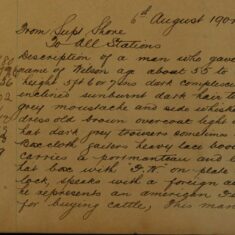 6th August 190
From Supt Shore
To All Stations
Description of a man who gave
name of Nelson age about 55 to
height 5ft 6 or 7 ins dark complexi
inclined sunburnt dark hair tu
grey moustache and side whiske
dress old brown overcoat light
hat dark grey trowsers sometimes
Box cloth gaiters heavy lace boo
carries a portmanteau and
hat box with on plate
lock, speaks with a foreign ac
he represents an american
for buying cattle, This man